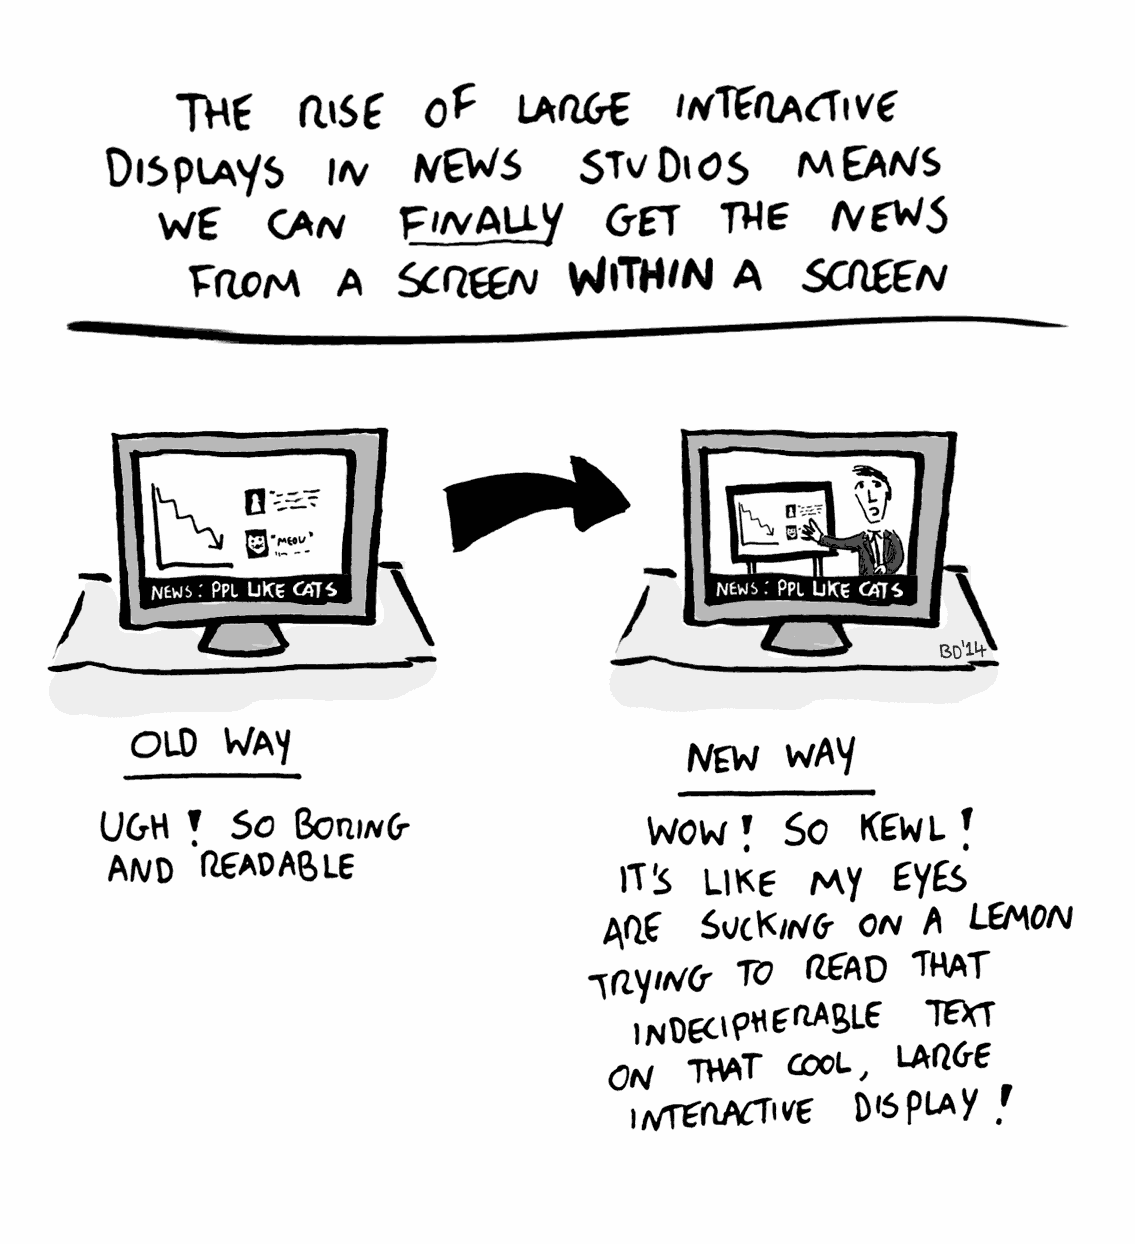 THE RISE OF LARGE INTERACTIVE
DISPLAYS IN NEWS STUDIOS MEANS
WE CAN FINALLY GET THE NEWS
FROM A SCREEN WITHIN A SCREEN
"MEOW"
NEWS: PPL LIKE CATS
NEWS: PPL LIKE CATS
BD'14
OLD WAY
UGH! SO BORING
AND READABLE
NEW WAY
WOW! SO KEWL!
IT'S LIKE MY EYES
ARE SUCKING ON A LEMON
TRYING TO READ THAT
INDECIPHERABLE TEXT
ON THAT COOL, LARGE
INTERACTIVE DISPLAY!